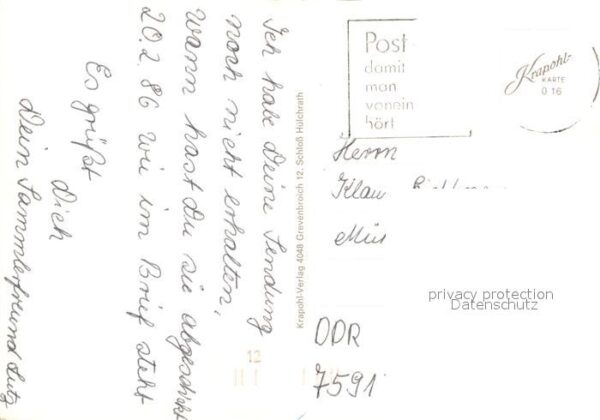 Ich habe Deine Sendung
noch nicht erhalten,
wann hast Du sie abgeschickt
20.2.86 wie im Brief steht
Es grüßt
Dich
Dein Sammlerfreund Lutz
Krapohl-Verlag 4048 Grevenbroich 12, Schloß Hülchrath
Post
damit
man
voneinn
hört
Krapohl-
KARTE
0 16
Herrn
Klau
privacy protection
Datenschutz
DDR
7591
12